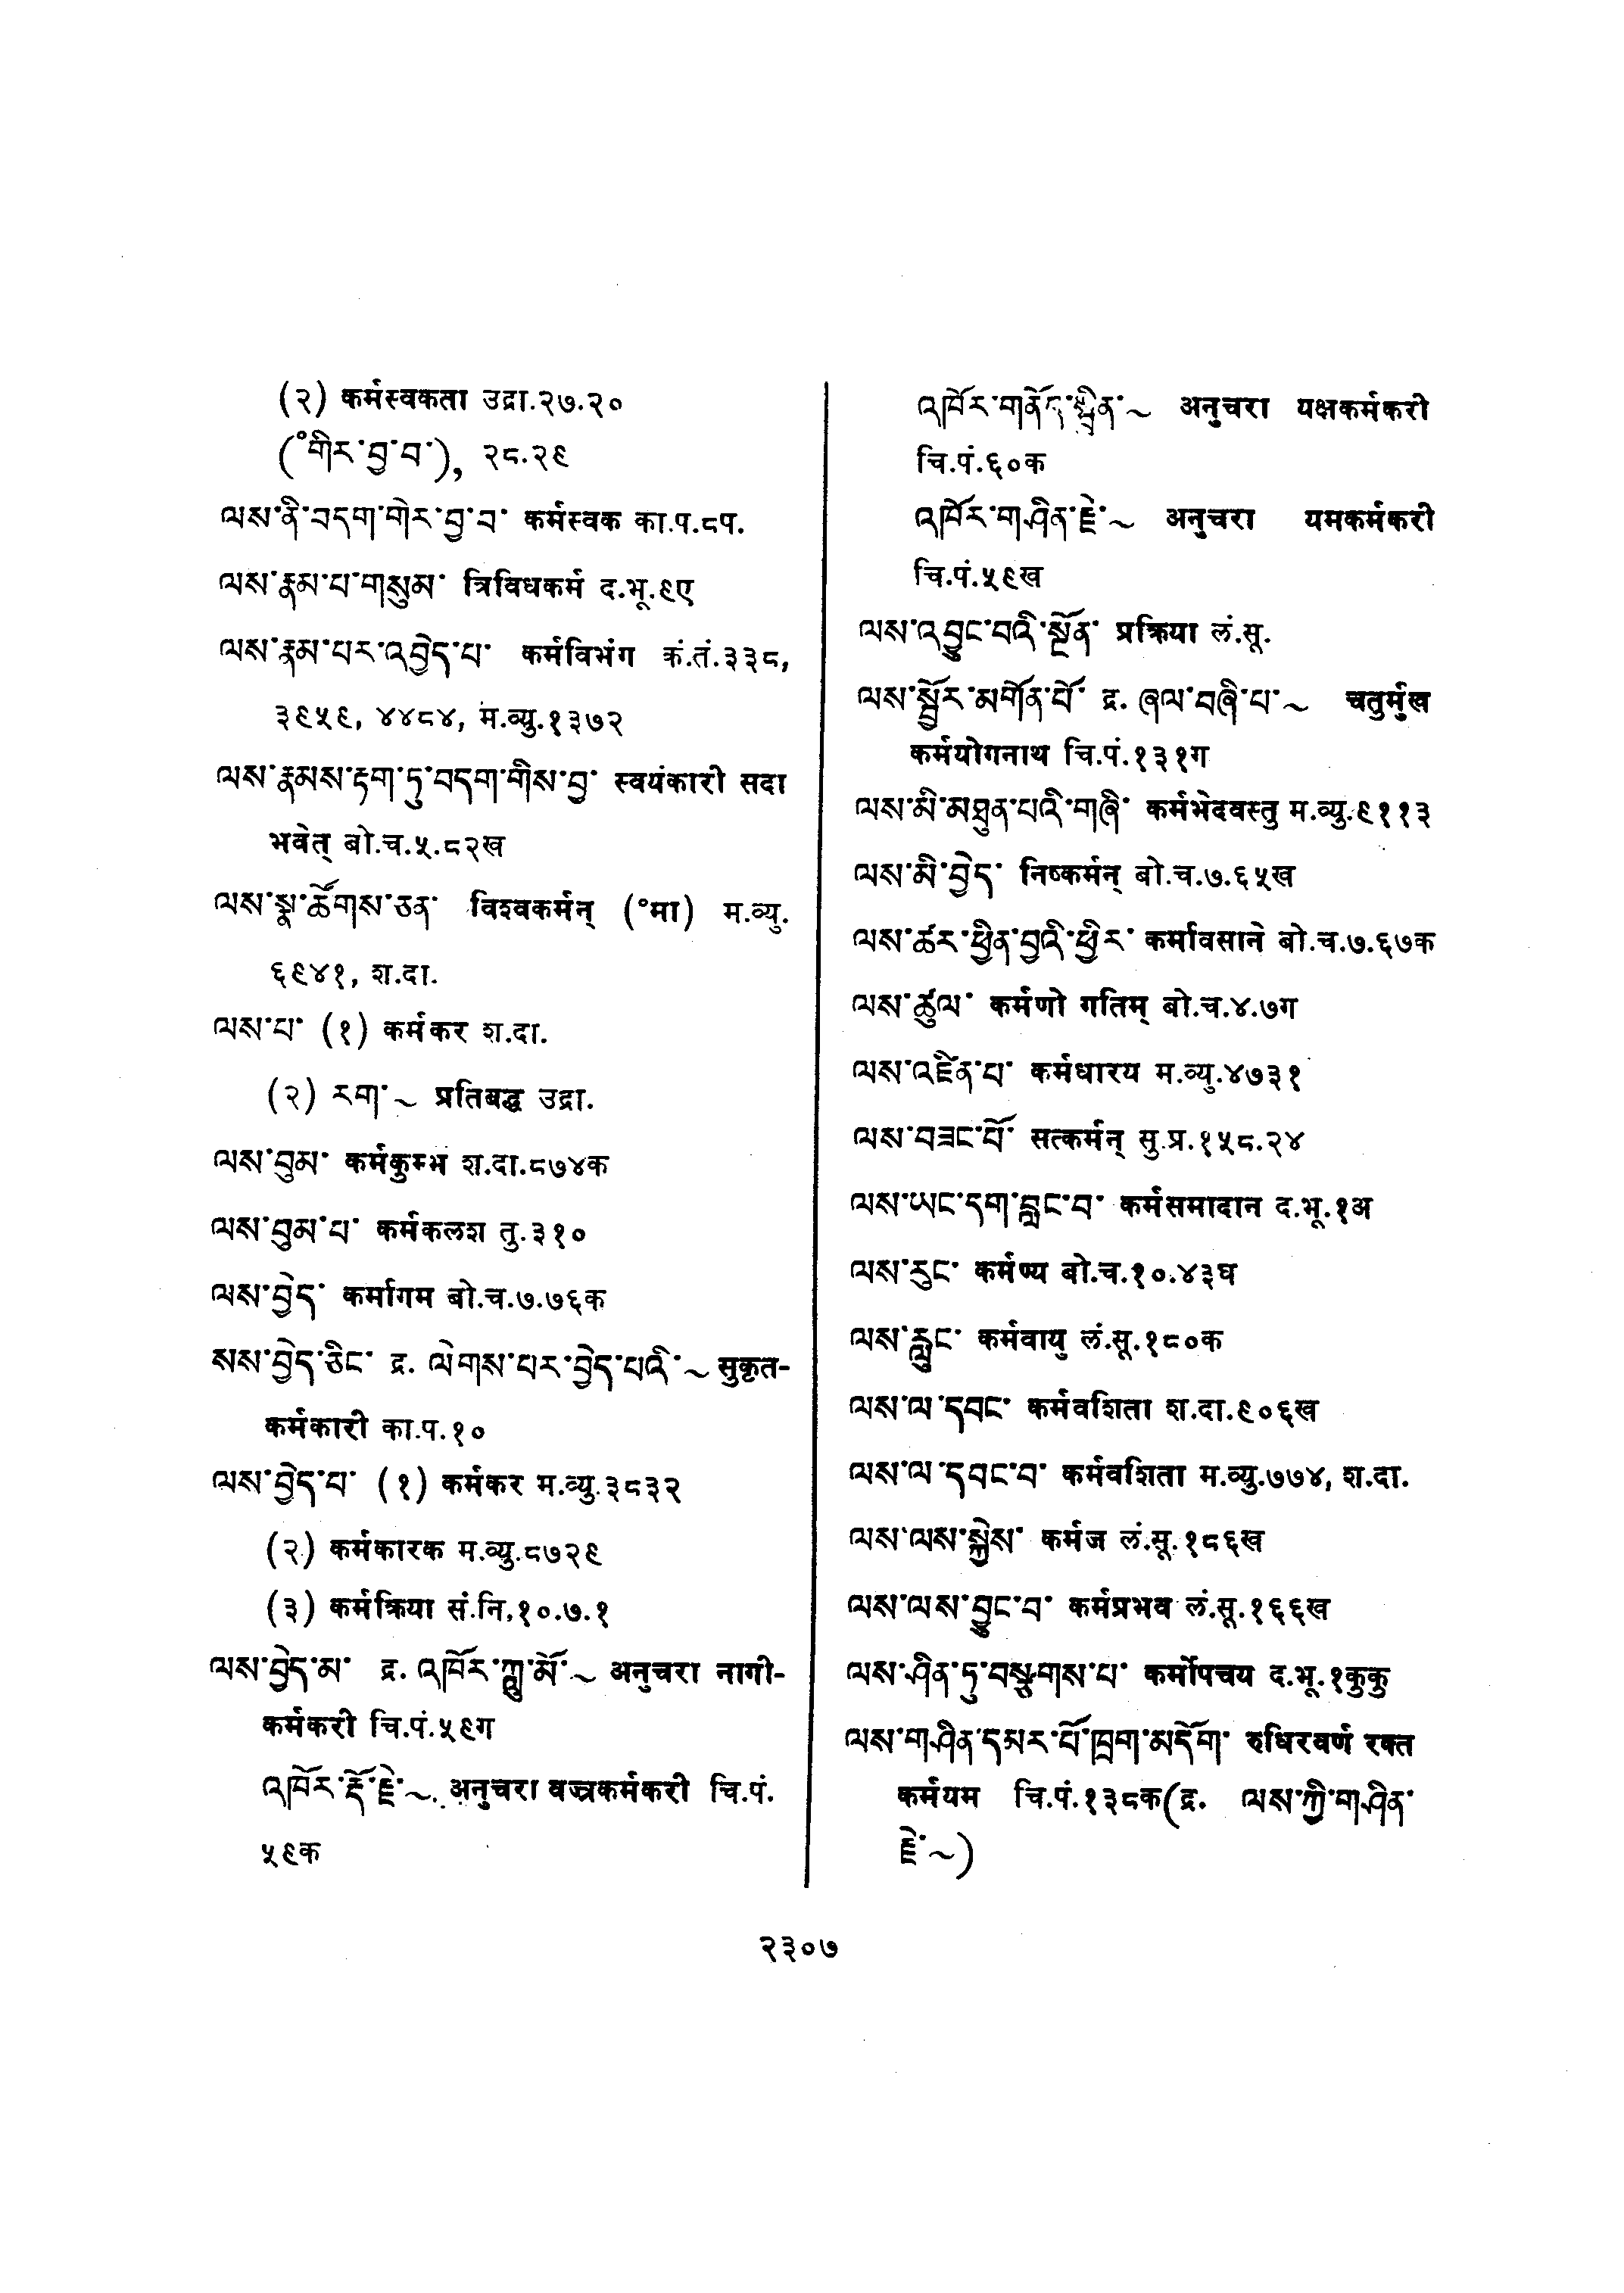 (२) कर्मस्वकता उद्रा.२७.२०
(°གིར་བྱ་བ་), २८.२९
ལས་ནི་བདག་གེར་བྱ་བ་ कर्मस्वक का.प.८प.
ལས་རྣམ་པ་གསུམ་ त्रिविधकर्म द.भू.९ए
ལས་རྣམ་པར་འབྱེད་པ་ कर्मविभंग कं.तं.३३८,
३९५९, ४४८४, म.व्यु.१३७२
ལས་རྣམས་རྟག་ཏུ་བདག་གིས་བྱ་ स्वयंकारी सदा
भवेत् बो.च.५.८२ख
ལས་སྣ་ཚོགས་ཅན་ विश्वकर्मन् (°मा) म.व्यु.
६९४१, श.दा.
ལས་པ་ (१) कर्मकर श.दा.
(२) རག་~ प्रतिबद्ध उद्रा.
ལས་བུམ་ कर्मकुम्भ श.दा.८७४क
ལས་བུམ་པ་ कर्मकलश तु.३१०
ལས་བྱེད་ कर्मागम बो.च.७.७६क
སས་བྱེད་ཅིང་ द्र. ལེགས་པར་བྱེད་པའི་~ सुकृत-
कर्मकारी का.प.१०
ལས་བྱེད་པ་ (१) कर्मकर म.व्यु.३८३२
(२) कर्मकारक म.व्यु.८७२९
(३) कर्मक्रिया सं.नि.१०.७.१
ལས་བྱེད་མ་ द्र. འཁོར་ཀླུ་མོ་~ अनुचरा नागी-
कर्मकरी चि.पं.५९ग
འཁོར་རྡོ་རྗེ་~ अनुचरा वज्रकर्मकरी चि.पं.
५९क
འཁོར་གནོད་སྦྱིན་~ अनुचरा यक्षकर्मकरी
चि.पं.६०क
འཁོར་གཤིན་རྗེ་~ अनुचरा यमकर्मकरी
चि.पं.५९ख
ལས་འབྱུང་བའི་སྔོན་ प्रक्रिया लं.सू.
ལས་སྦྱོར་མགོན་པོ་ द्र. ཞལ་བཞི་པ་~ चतुर्मुख
कर्मयोगनाथ चि.पं.१३१ग
ལས་མི་མཐུན་པའི་གཞི་ कर्मभेदवस्तु म.व्यु.९११३
ལས་མི་བྱེད་ निष्कर्मन् बो.च.७.६५ख
ལས་ཚར་ཕྱིན་བྱའི་ཕྱིར་ कर्मावसाने बो.च.७.६७क
ལས་ཚུལ་ कर्मणो गतिम् बो.च.४.७ग
ལས་འཛིན་པ་ कर्मधारय म.व्यु.४७३१
ལས་བཟང་པོ་ सत्कर्मन् सु.प्र.१५८.२४
ལས་ཡང་དག་བླང་བ་ कर्मसमादान द.भू.१अ
ལས་རུང་ कर्मण्य बो.च.१०.४३घ
ལས་རླུང་ कर्मवायु लं.सू.१८०क
ལས་ལ་དབང་ कर्मवशिता श.दा.९०६ख
ལས་ལ་དབང་བ་ कर्मवशिता म.व्यु.७७४, श.दा.
ལས་ལས་སྐྱེས་ कर्मज लं.सू.१८६ख
ལས་ལས་བྱུང་བ་ कर्मप्रभव लं.सू.१६६ख
ལས་ཤིན་ཏུ་བསྩགས་པ་ कर्मोपचय द.भू.१कुकु
ལས་གཤིན་དམར་པོ་ཁྲག་མདོག་ रुधिरवर्ण रक्त
कर्मयम चि.पं.१३८क(द्र. ལས་ཀྱི་གཤིན་
རྗེ་~)
२३०७